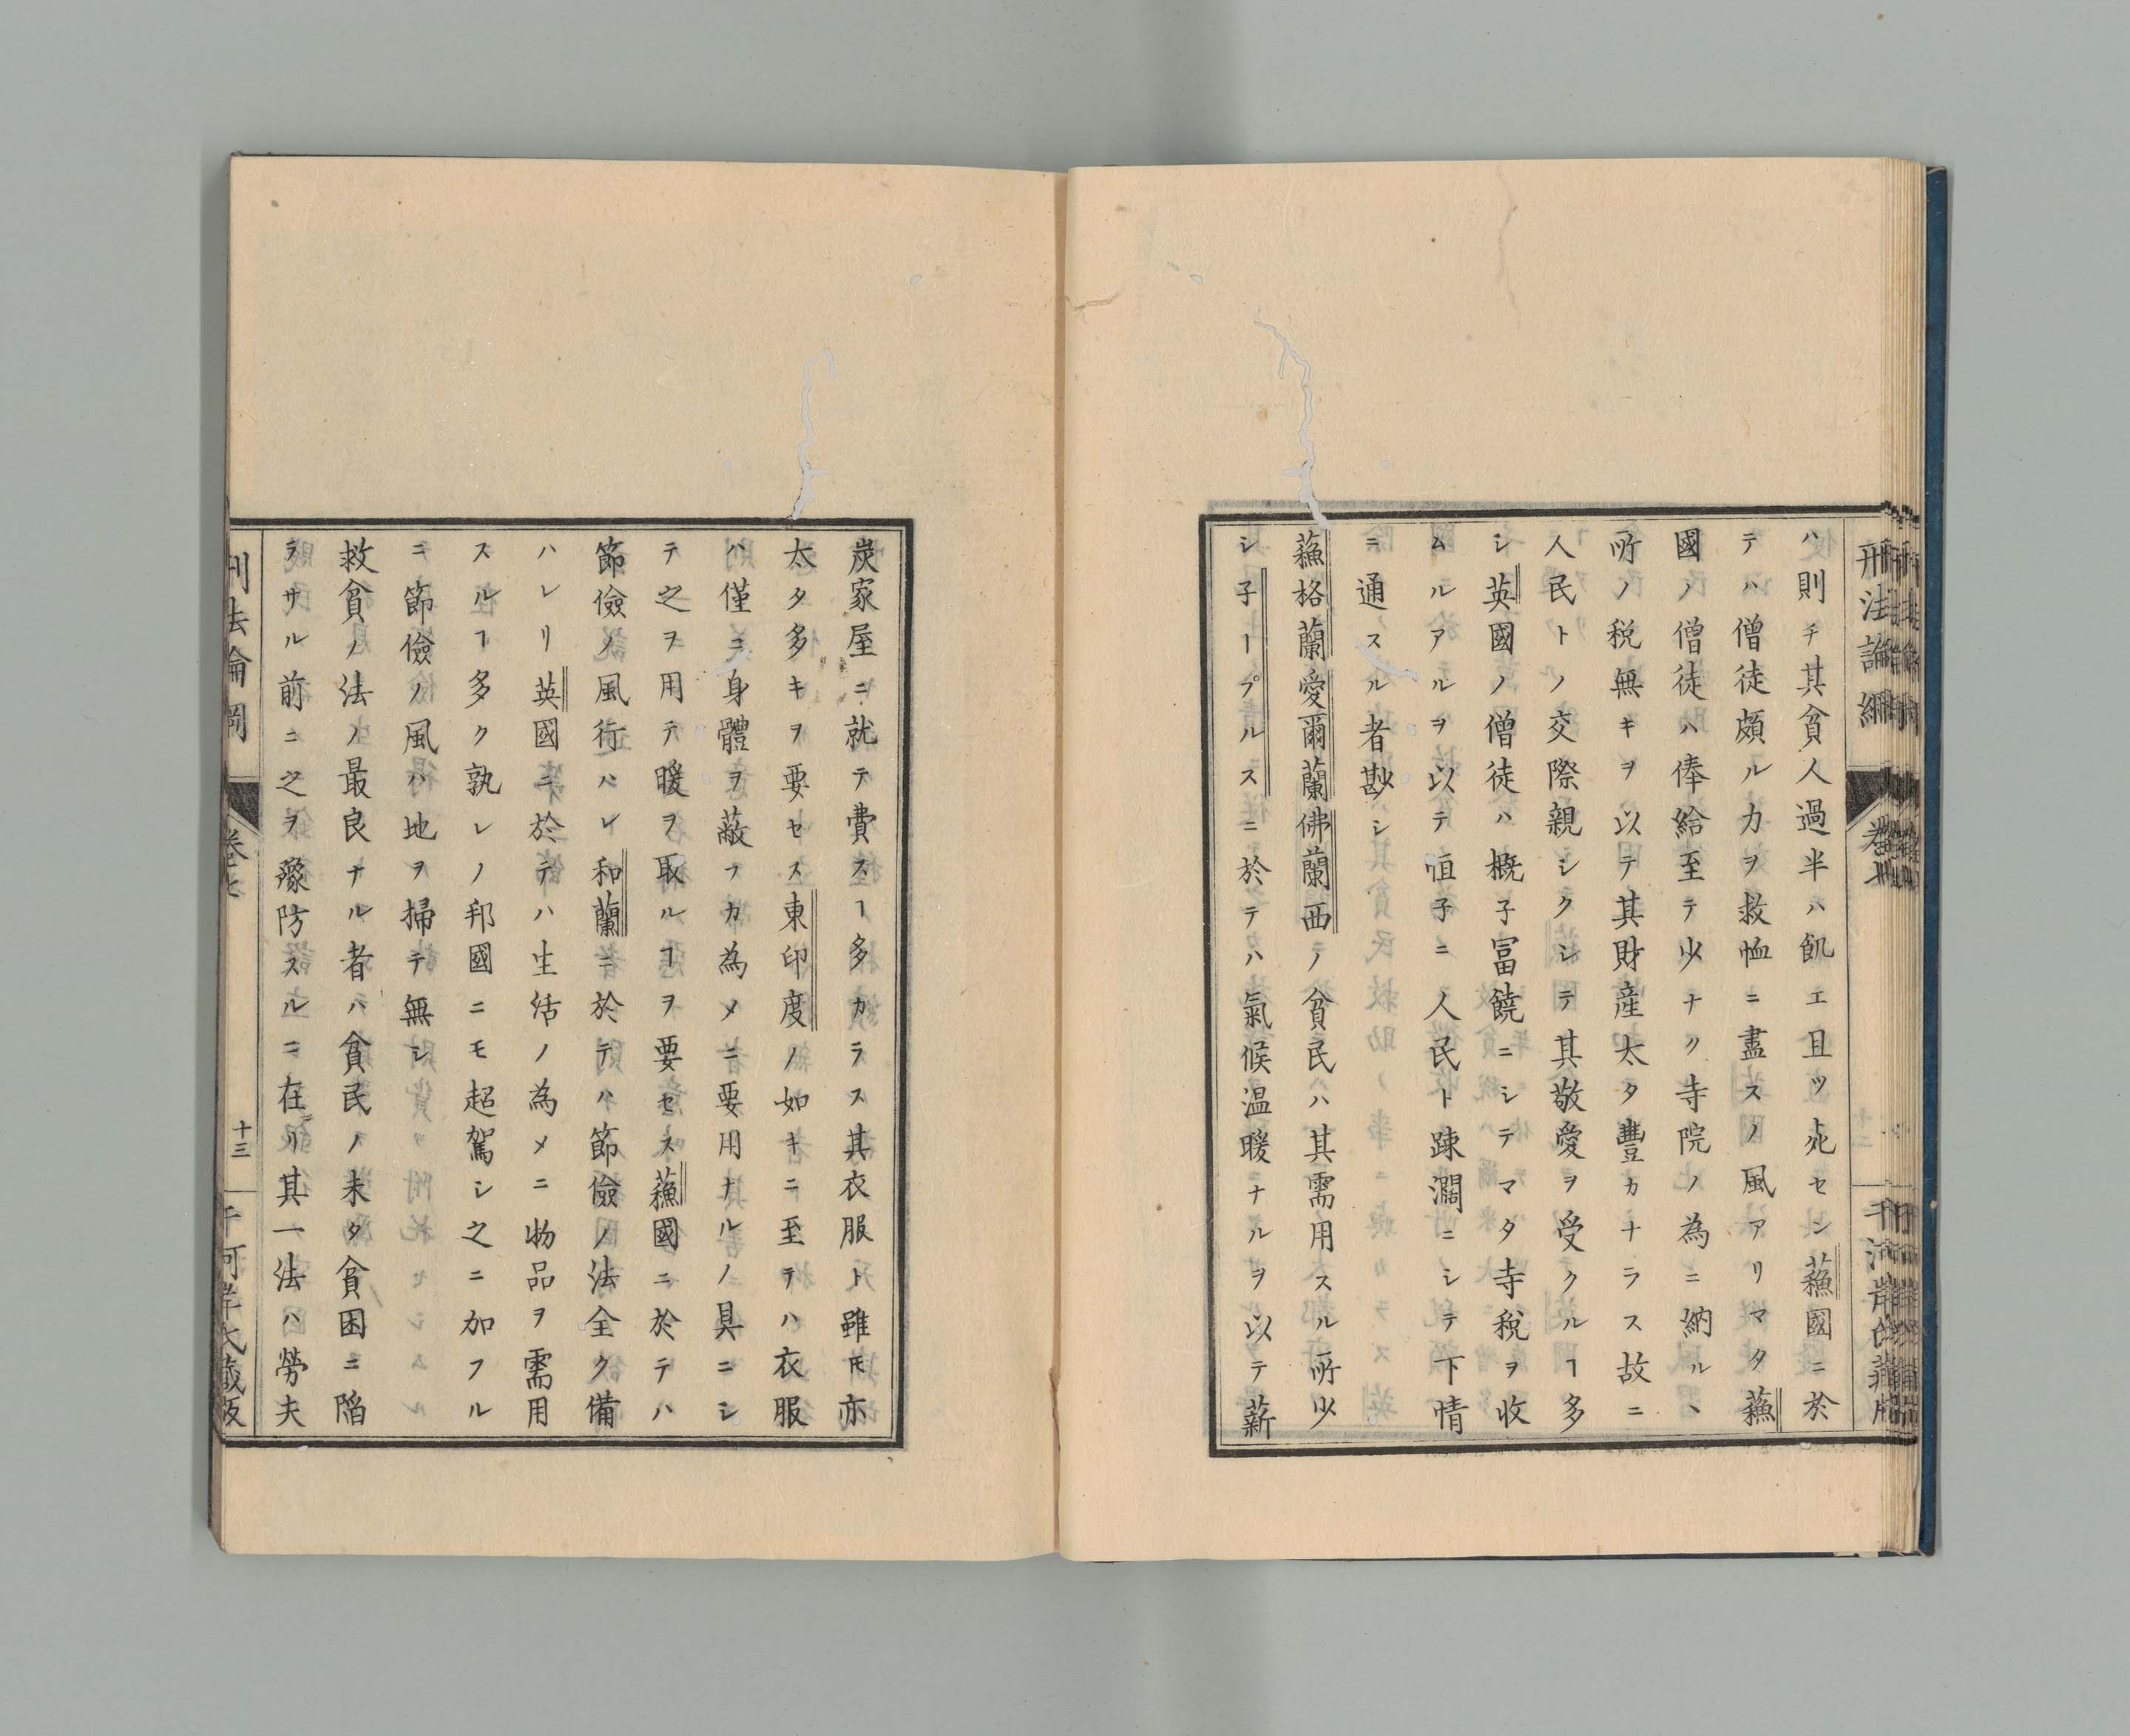 刑法論綱
卷七
ハ則チ其貧人過半ハ飢ヱ且ツ死セン蘓國ニ於
テハ僧徒頗ル力ヲ救恤ニ盡スノ風アリマタ蘓
國ノ僧徒ハ俸給至テ少ナク寺院ノ為ニ納ルヽ
所ノ税無キヲ以テ其財産太タ豐カナラス故ニ
人民トノ交際親シクシテ其敬愛ヲ受クルヿ多
シ英國ノ僧徒ハ概子富饒ニシテマタ寺税ヲ收
ムルアルヲ以テ恒子ニ人民ト踈濶ニシテ下情
ニ通スル者尠シ
蘓格蘭愛爾蘭佛蘭西ノ貧民ハ其需用スル所少
シ子ープルスニ於テハ氣候温暖ナルヲ以テ薪
炭家屋ニ就テ費スヿ多カラス其衣服ト雖モ亦
太タ多キヲ要セス東印度ノ如キニ至テハ衣服
ハ僅ニ身體ヲ蔽フカ為メニ要用ナルノ具ニシ
テ之ヲ用テ暖ヲ取ルヿヲ要セス蘓國ニ於テハ
節儉ノ風行ハレ和蘭ニ於テハ節儉ノ法全ク備
ハレリ英國ニ於テハ生活ノ為メニ物品ヲ需用
スルヿ多ク孰レノ邦國ニモ超駕シ之ニ加フル
ニ節儉ノ風ハ地ヲ掃テ無シ
救貧ノ法ノ最良ナル者ハ貧民ノ未タ貧困ニ陷
ラサル前ニ之ヲ豫防スルニ在リ其一法ハ勞夫
刑法論綱
卷七
十三